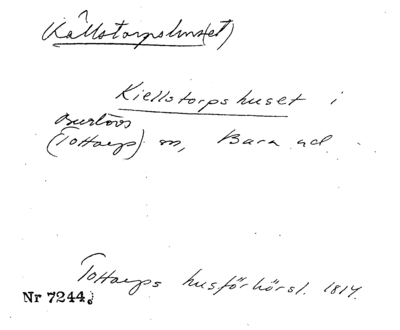 Källstorpshus(et)
Kiellstorpshuset i
Burlövs
(Tottarp) sn, Bara hd.
Tottarps husförhörsl. 1814.
Nr 7244.